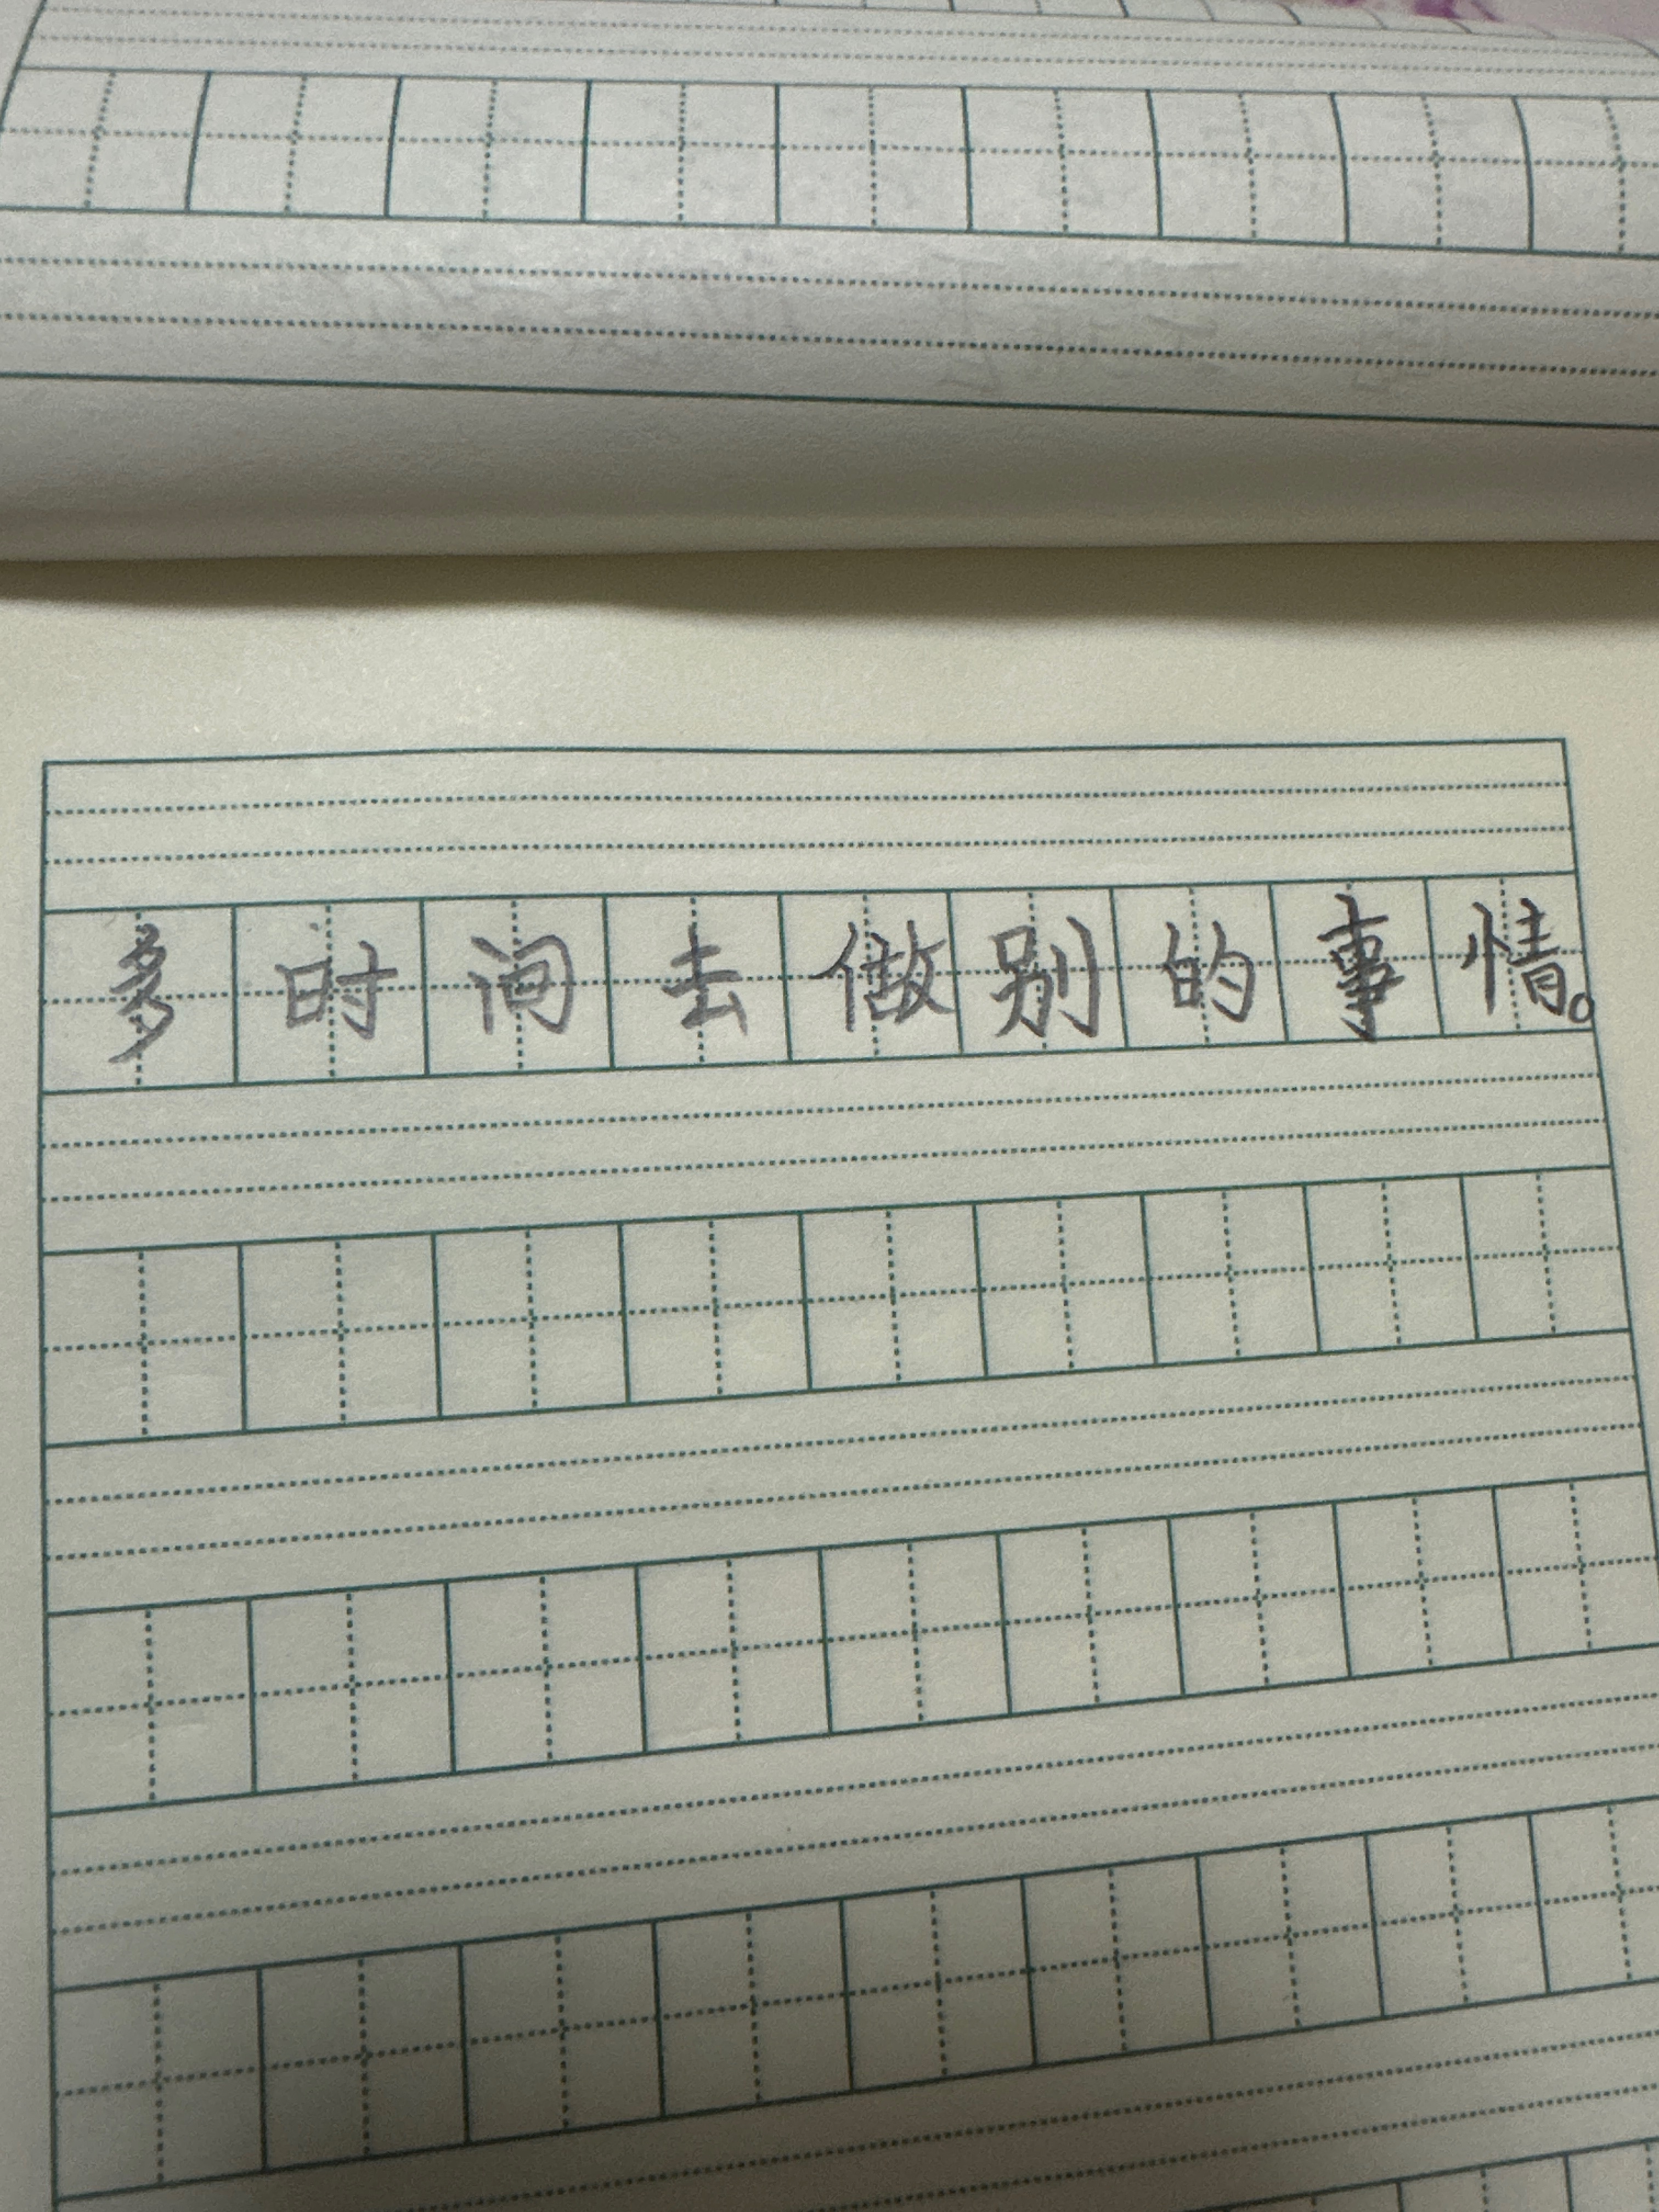 多时间去做别的事情。